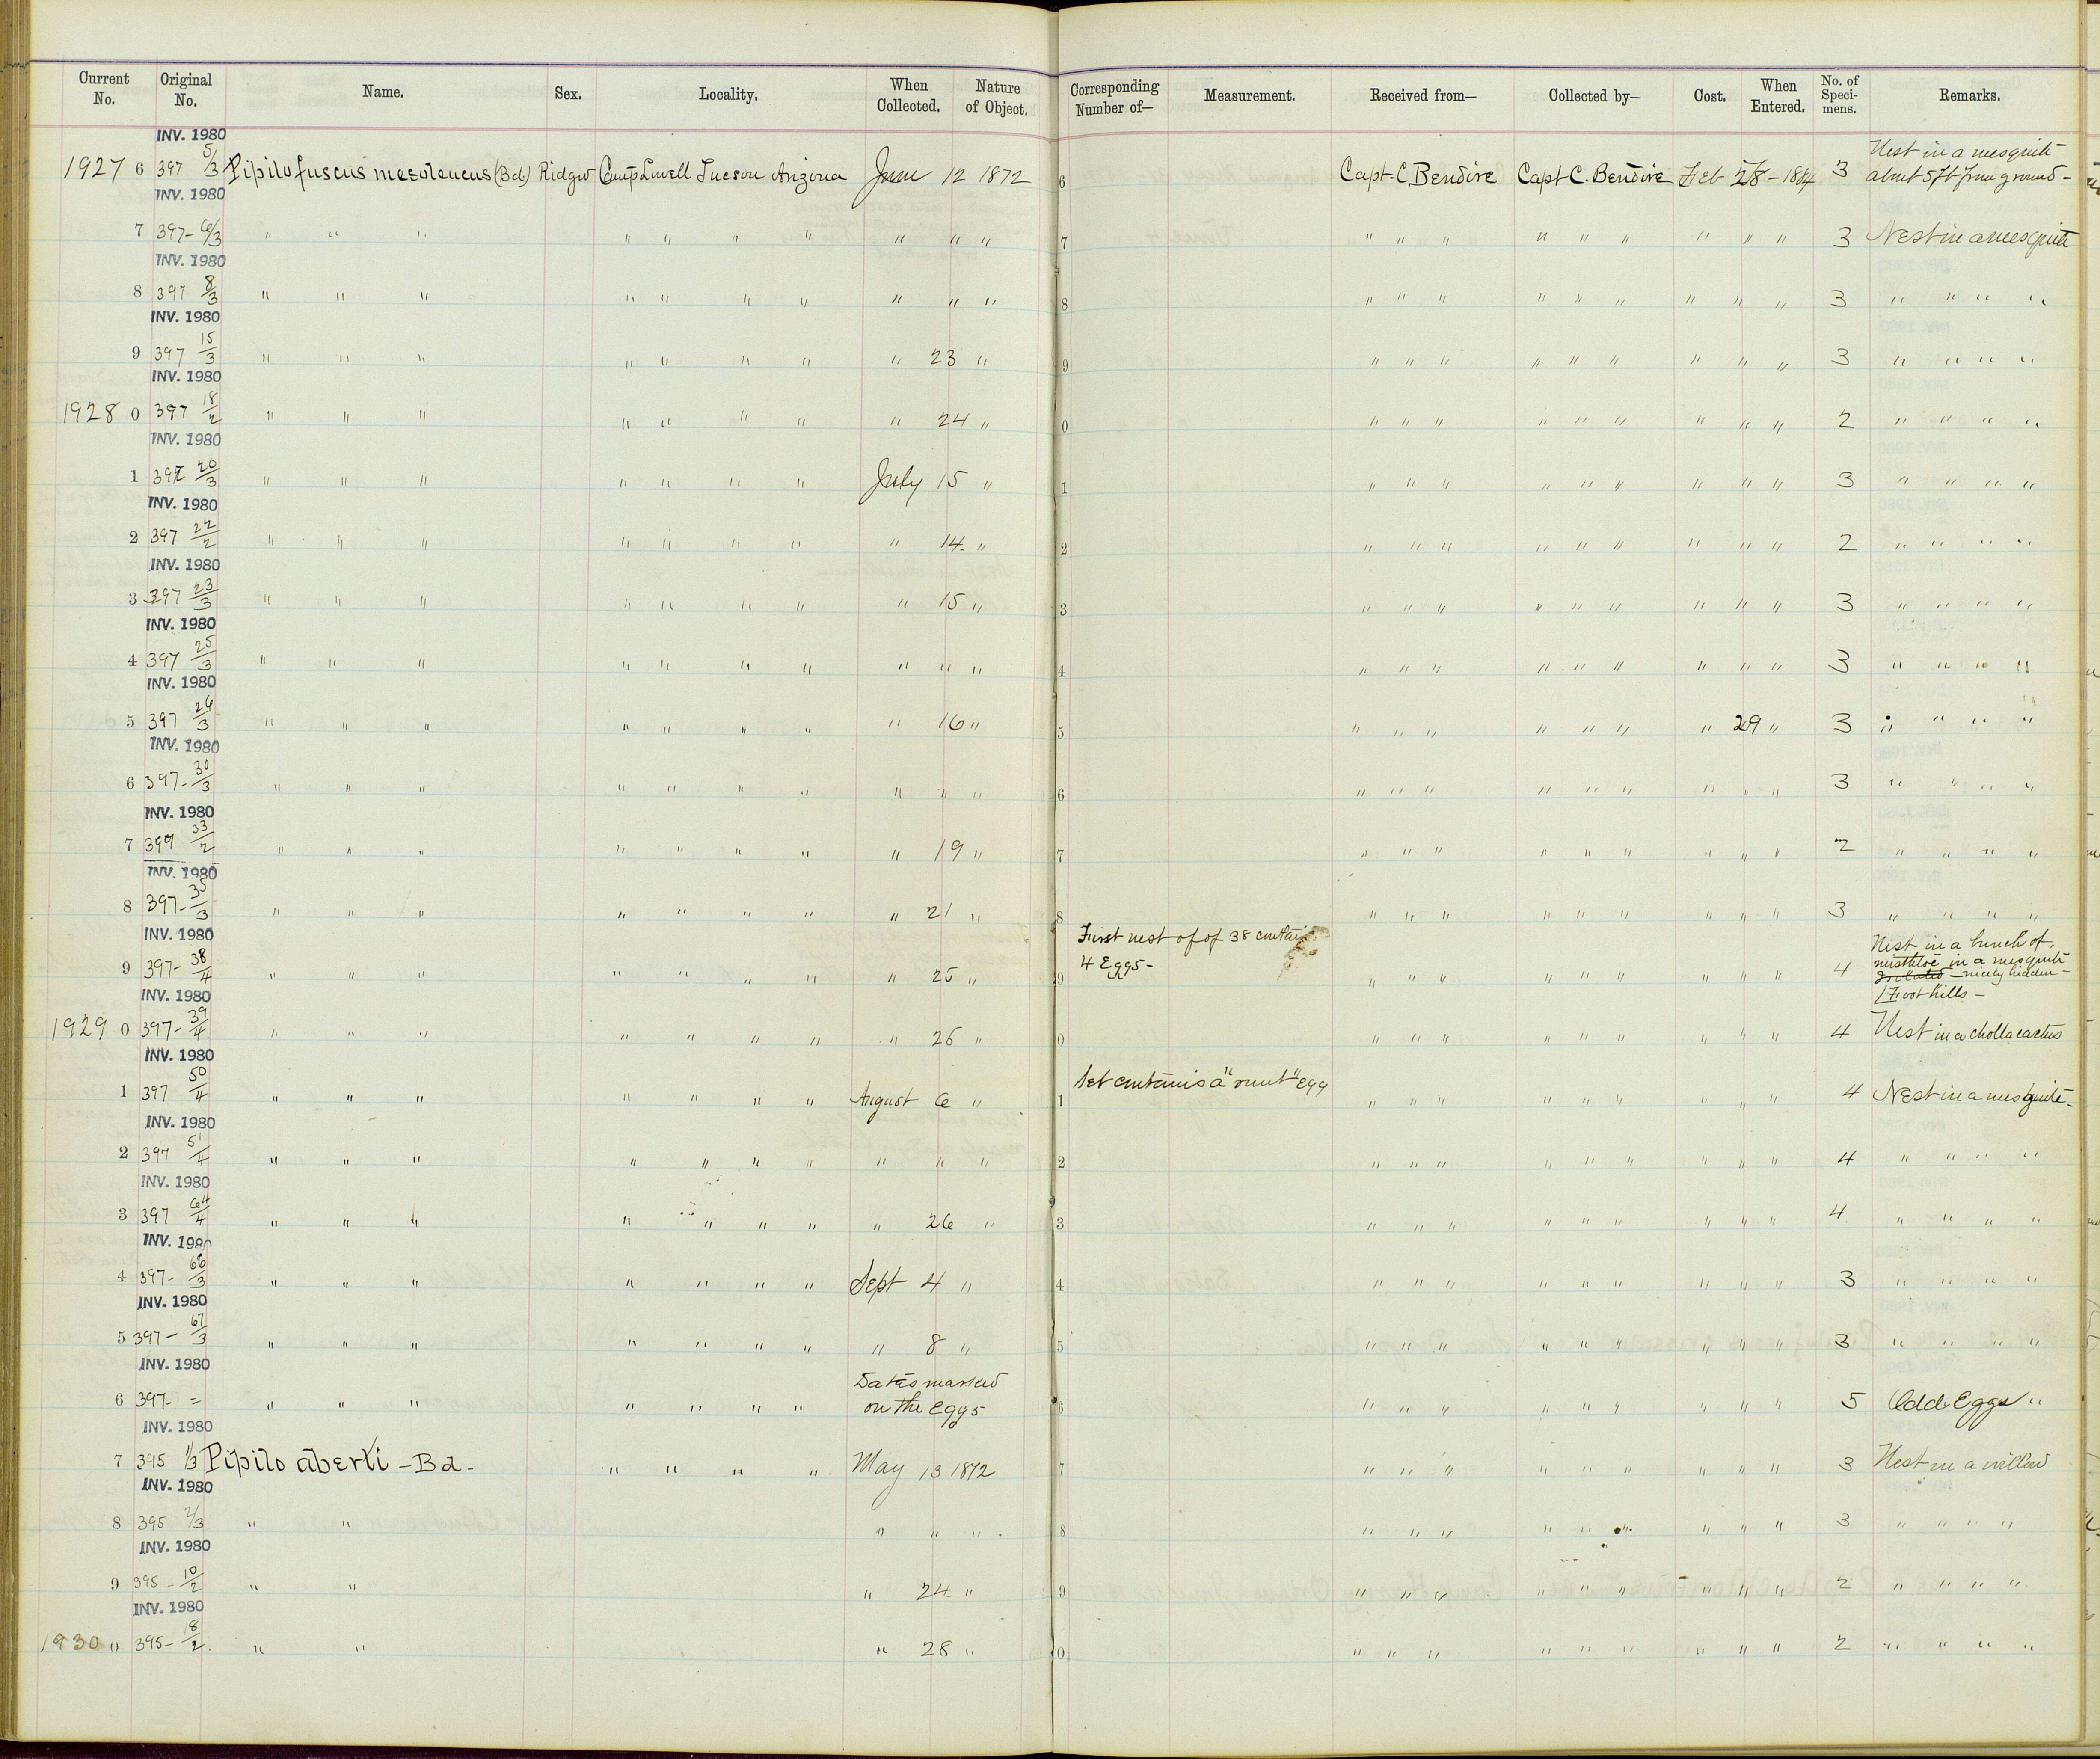 Current No. Original No. Name. Sex. Locality. When Collected. Nature of Object. Corresponding Number of— Measurement. Received from— Collected by— Cost. When Entered. No. of Specimens. Remarks.
INV. 1980
19276 397 5/3 Pipilo fuscus mesoleucus (Bd) Ridgw Camp Lowell Tucson Arizona June 12 1872 6 Capt. C. Bendire Capt C. Bendire Feb 28 - 1884 3 Nest in a mesquite about 5 ft from ground -
INV. 1980
7 397- 6/3 " " " " " " " " " " 7 " " " " " " " " " " 3 Nest in a mesquite
INV. 1980
8 397 8/3 " " " " " " " " " " 8 " " " " " " " " " 3 " " " "
INV. 1980
9 397 15/3 " " " " " " " " 23 " 9 " " " " " " " " " 3 " " " "
INV. 1980
19280 397 18/2 " " " " " " " " 24 " 0 " " " " " " " " " 2 " " " "
INV. 1980
1 397 20/3 " " " " " " " July 15 " 1 " " " " " " " " " 3 " " " "
INV. 1980
2 397 22/2 " " " " " " " " 14 " 2 " " " " " " " " " 2 " " " "
INV. 1980
3 397 23/3 " " " " " " " " 15 " 3 " " " " " " " " " 3 " " " "
INV. 1980
4 397 25/3 " " " " " " " " " " 4 " " " " " " " " " 3 " " " "
INV. 1980
5 397 26/3 " " " " " " " " 16 " 5 " " " " " " " 29 " 3 " " " "
INV. 1980
6 397- 30/3 " " " " " " " " " " 6 " " " " " " " " " 3 " " " "
INV. 1980
7 397 33/2 " " " " " " " " 19 " 7 " " " " " " " " " 2 " " " "
INV. 1980
8 397- 35/3 " " " " " " " " 21 " 8 " " " " " " " " " 3 " " " "
INV. 1980
9 397- 38/4 " " " " " " " " 25 " 9 First nest of of 38 4 Eggs - " " " " " " " " 4 Nest in a bunch of mistletoe in a mesquite - nicely hidden - Foothills -
INV. 1980
19290 397- 39/4 " " " " " " " " 26 " 0 " " " " " " " " " 4 Nest in a cholla cactus
INV. 1980
1 397 50/4 " " " " " " " August 6 " 1 Set contains a "runt" Egg " " " " " " " " " 4 Nest in a mesquite -
INV. 1980
2 397 51/4 " " " " " " " " " " 2 " " " " " " " " " 4 " " " "
INV. 1980
3 397 64/4 " " " " " " " " 26 " 3 " " " " " " " " " 4 " " " "
INV. 1980
4 397- 66/3 " " " " " " " Sept 4 " 4 " " " " " " " " " 3 " " " "
INV. 1980
5 397- 67/3 " " " " " " " " 8 " 5 " " " " " " " " " 3 " " " "
INV. 1980
6 397- = " " " " " " " Dates marked on the Eggs 6 " " " " " " " " " 5 Odd Eggs "
INV. 1980
7 395 1/3 Pipilo aberti - Bd - " " " " May 13 1872 7 " " " " " " " " " 3 Nest in a willow
INV. 1980
8 395 2/3 " " " " " 8 " " " " " " " " " 3 " " " "
INV. 1980
9 395- 10/2 " " " 24 " 9 " " " " " " " " " 2 " " " "
INV. 1980
19300 395- 18/2 " " " 28 " 0 " " " " " " " " " 2 " " " "